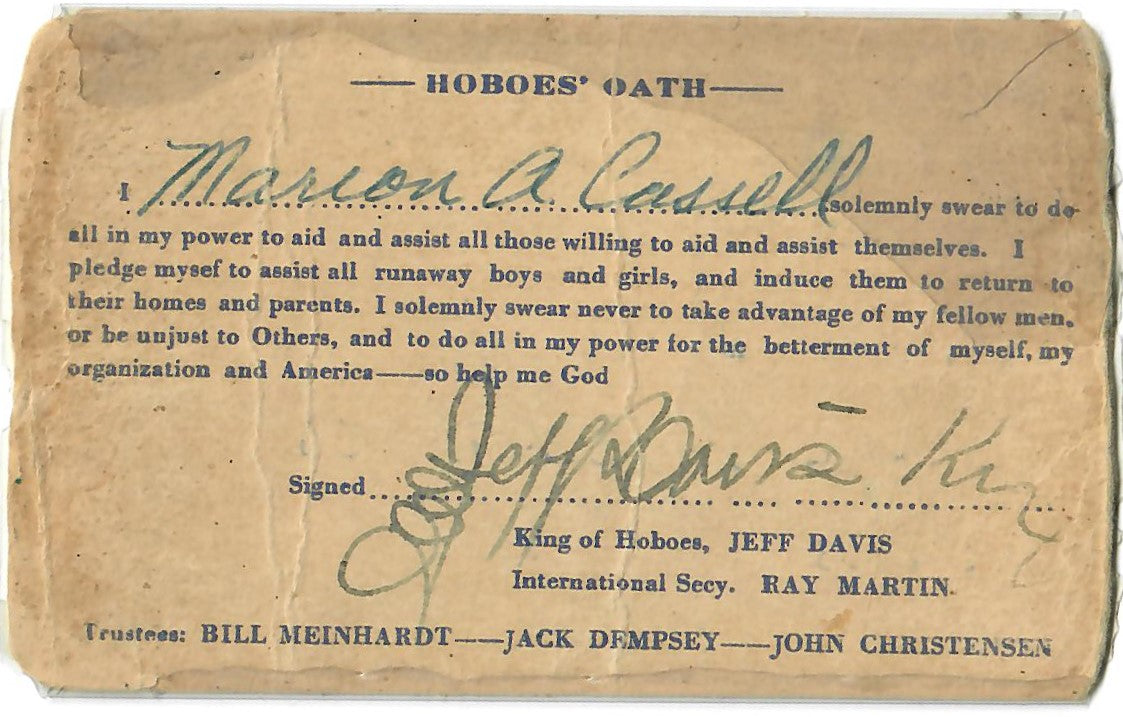 ——HOBOES' OATH——
I Marion A. Cassell solemnly swear to do
all in my power to aid and assist all those willing to aid and assist themselves. I
pledge mysef to assist all runaway boys and girls, and induce them to return to
their homes and parents. I solemnly swear never to take advantage of my fellow men.
or be unjust to Others, and to do all in my power for the betterment of myself, my
organization and America——so help me God
Signed Jeff Davis King
King of Hoboes, JEFF DAVIS
International Secy. RAY MARTIN.
Trustees: BILL MEINHARDT——JACK DEMPSEY——JOHN CHRISTENSEN